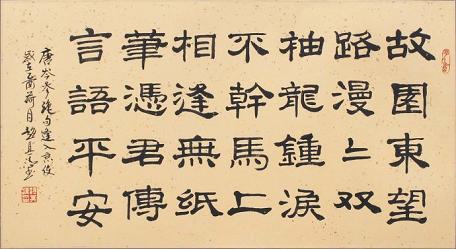 故園東望
路漫〻双
袖龍鍾淚
不幹馬上
相逢無紙
筆憑君傳
言語平安
唐岑參絕句逢入京使
歲在乙酉荷月